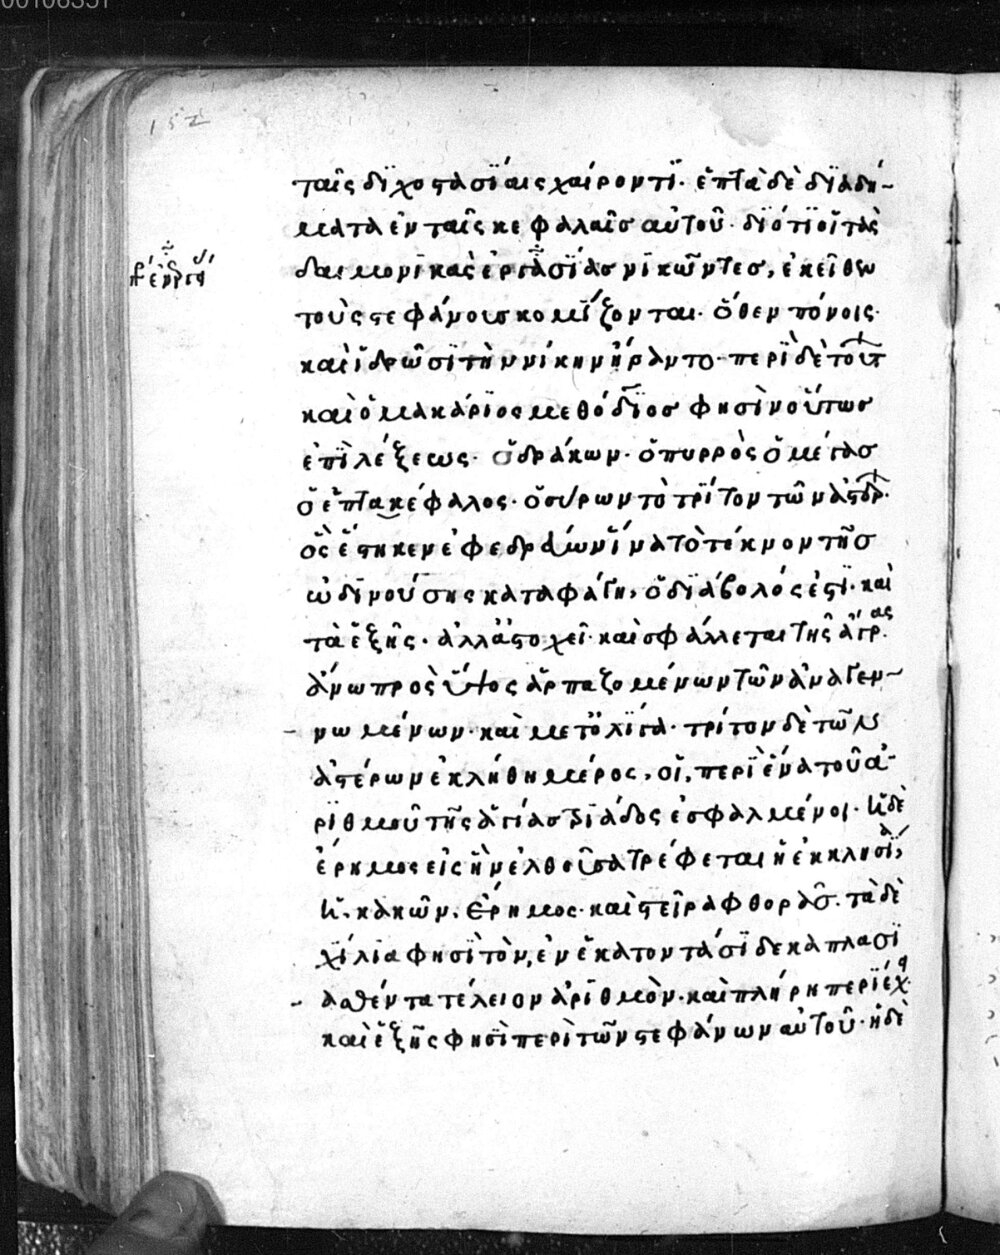 152
ταῖς διχοστασίαις χαίροντι. ἑπτὰ δὲ διαδή-
ματα ἐν ταῖς κεφαλαῖς αὐτοῦ. διότι οἱ τὰς
δαιμονικὰς ἐργασίας νικῶντες, ἐκεῖθεν
τοὺς στεφάνους κομίζονται. ὅθεν πόνοις
καὶ ἱδρῶσι τὴν νίκην ἤραντο. περὶ δὲ τούτ
καὶ ὁ μακάριος μεθόδιος φησὶν οὕτως
ἐπὶ λέξεως. ὁ δράκων. ὁ πυρρὸς ὁ μέγας
ὁ ἑπτακέφαλος. ὁ σύρων τὸ τρίτον τῶν ἀστρ.
ὃς ἕστηκεν ἐφεδρεύων ἵνα τὸ τέκνον τῆς
ὠδινούσης καταφάγη, ὁ διάβολός ἐστι. καὶ
τὰ ἑξῆς. ἀλλ' ἀστοχεῖ. καὶ σφάλλεται τῆς ἄγρας
ἄνω πρὸς ὕψος ἁρπαζομένων τῶν ἀναγεν-
νωμένων. καὶ μετ' ὀλίγα. τρίτον δὲ τῶν
ἀστέρων ἐκλήθη μέρος, οἱ περὶ ἕνα τοῦ ἀ-
ριθμοῦ τῆς ἁγίας τριάδος ἐσφαλμένοι. ἡ δὲ
ἔρημος εἰς ἣν ἐλθοῦσα τρέφεται ἡ ἐκκλησία,
ἡ κακῶν ἔρημος. καὶ στεῖρα φθορᾶς. τὰ δὲ
χίλια φησὶ τὸν ἐν ἑκατοντάσι δεκαπλασι
ασθέντα τέλειον ἀριθμὸν. καὶ πλήρη περιέχ
καὶ ἑξῆς φησὶ περὶ τῶν στεφάνων αὐτοῦ. ἡ δὲ